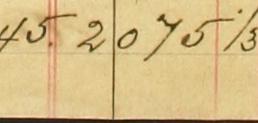 45. 2075 1/3